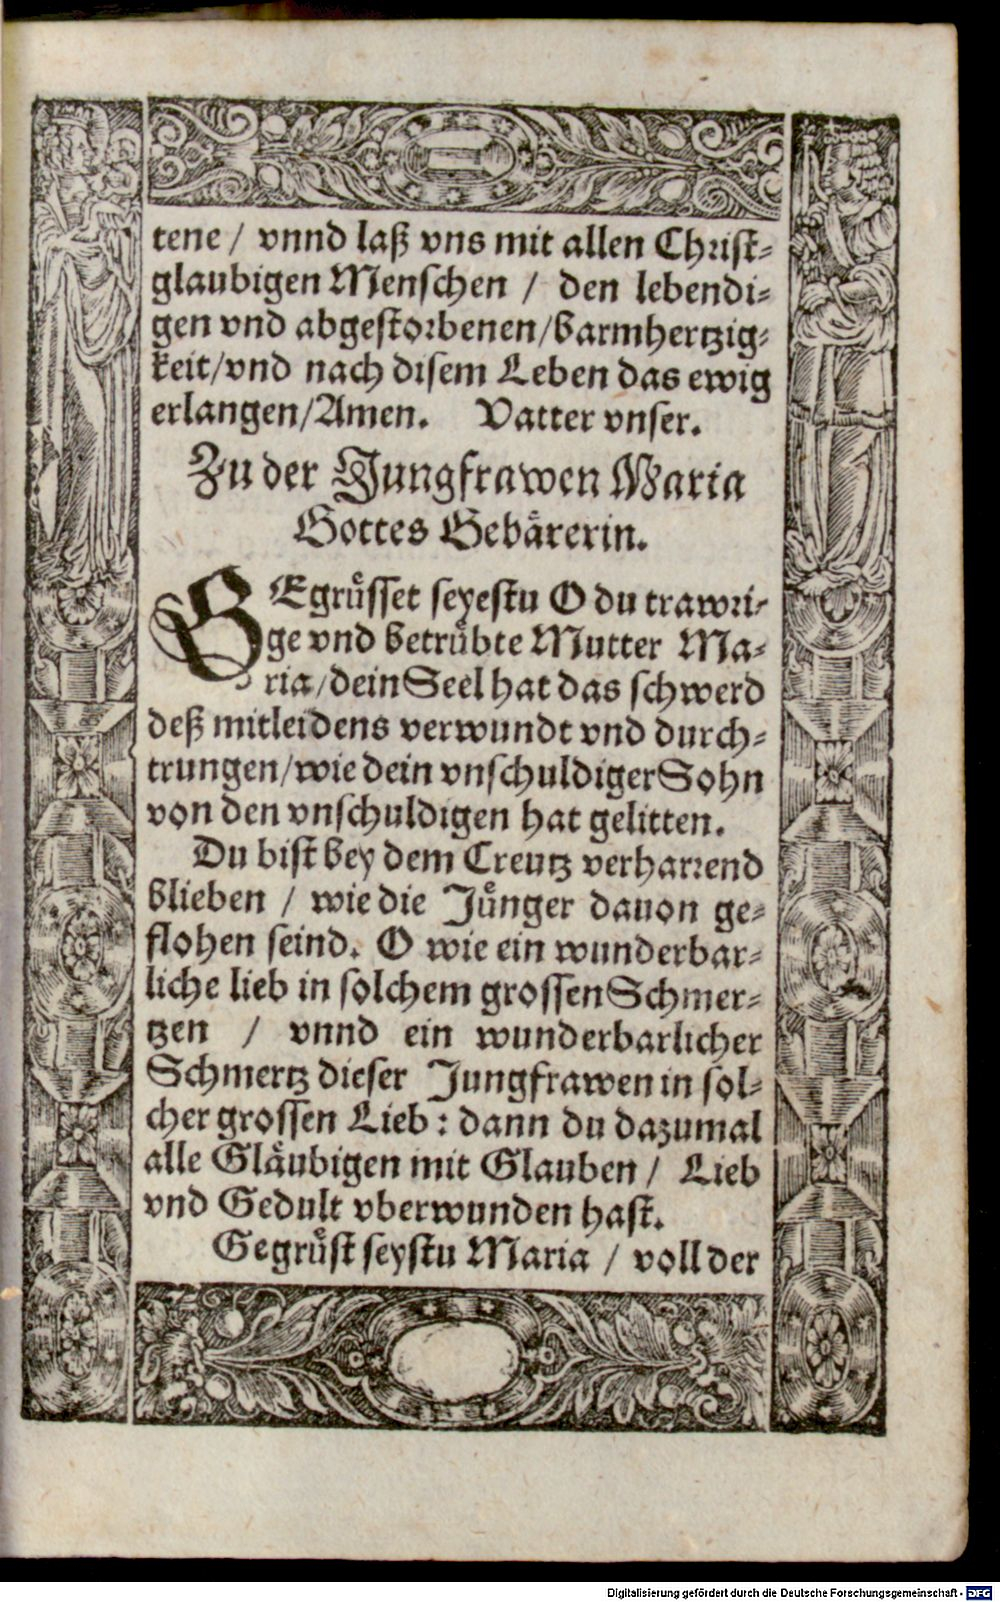 tene / vnnd laß vns mit allen Christ=
glaubigen Menschen / den lebendi=
gen vnd abgestorbenen/barmhertzig=
keit/vnd nach disem Leben das ewig
erlangen/Amen. Vatter vnser.
Zu der Jungfrawen Maria
Gottes Gebärerin.
GEgrüsset seyestu O du trawri=
ge vnd betrübte Mutter Ma=
ria/dein Seel hat das schwerd
deß mitleidens verwundt vnd durch=
trungen/wie dein vnschuldiger Sohn
von den vnschuldigen hat gelitten.
Du bist bey dem Creutz verharrend
blieben / wie die Jünger dauon ge=
flohen seind. O wie ein wunderbar=
liche lieb in solchem grossen Schmer=
tzen / vnnd ein wunderbarlicher
Schmertz dieser Jungfrawen in sol=
cher grossen Lieb: dann du dazumal
alle Gläubigen mit Glauben / Lieb
vnd Gedult vberwunden hast.
Gegrüst seystu Maria / voll der
Digitalisierung gefördert durch die Deutsche Forschungsgemeinschaft - DFG